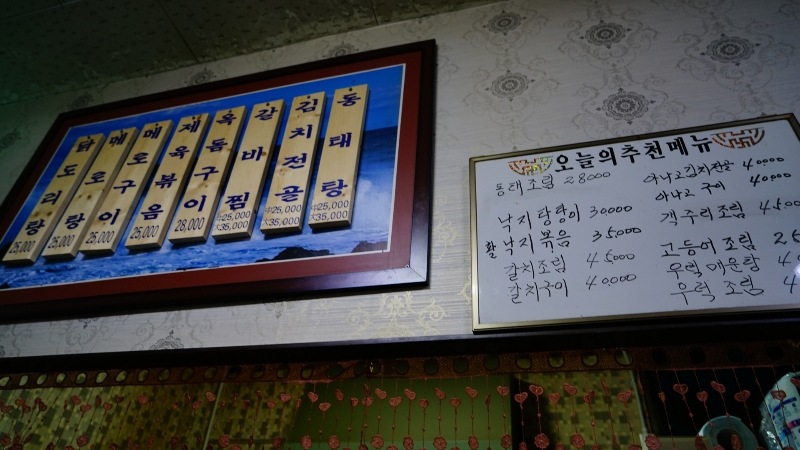 닭도리탕 25,000
메로탕 25,000
메로구이 25,000
제육볶음 25,000
옥돔구이 28,000
갈바찜 中25,000 大35,000
김치전골 中25,000 大35,000
동태탕 中25,000 大35,000
오늘의추천메뉴
동태조림 28000
낙지탕탕이 30,000
활 낙지볶음 35,000
갈치조림 45,000
갈치구이 40,000
아나고김치전골 40,000
아나고 구이 40,000
객주리조림
고등어 조림
우럭 매운탕
우럭 조림